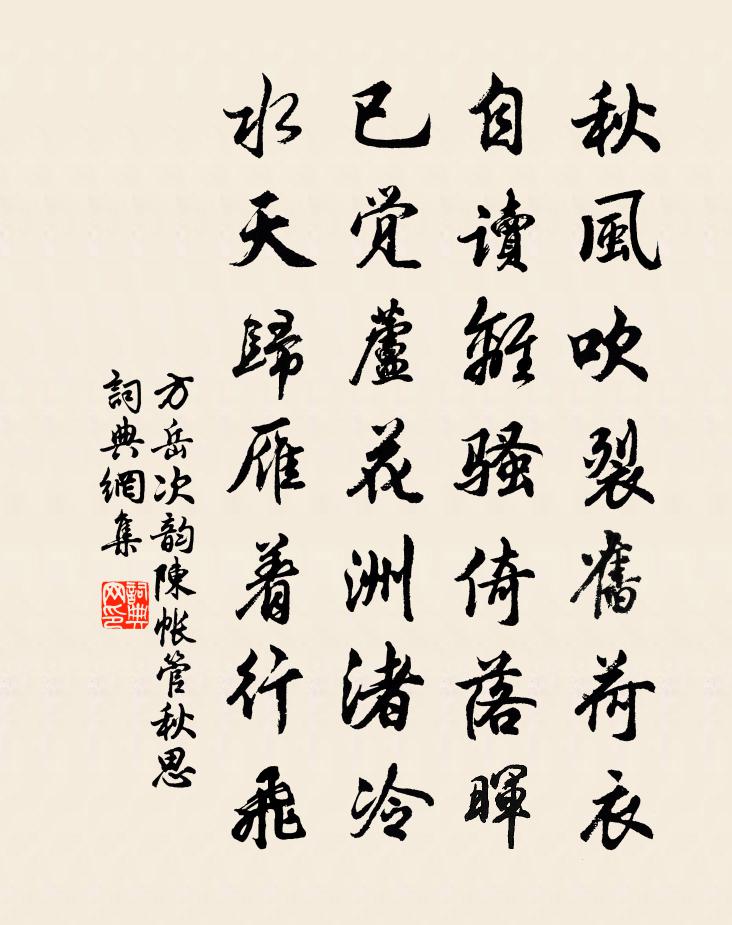 秋風吹裂舊荷衣
自讀離騷倚落暉
已觉蘆花洲渚冷
水天歸雁着行飛
方岳次韵陳帐管秋思
詞典網集
詞典网印